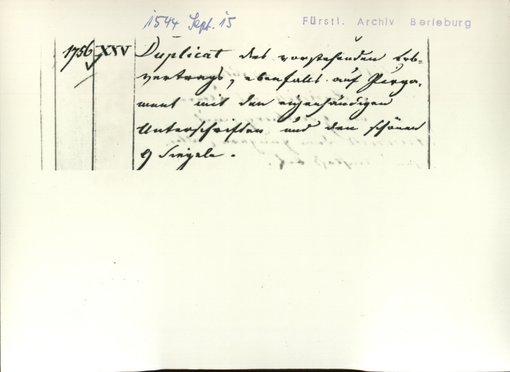 1544 Sept. 15
Fürstl. Archiv Berleburg
1756 XXV Duplicat des vorstehenden Erb-
vertrags, ebenfalls auf Perga-
ment mit den eigenhändigen
Unterschriften und den schönen
9 Siegeln.